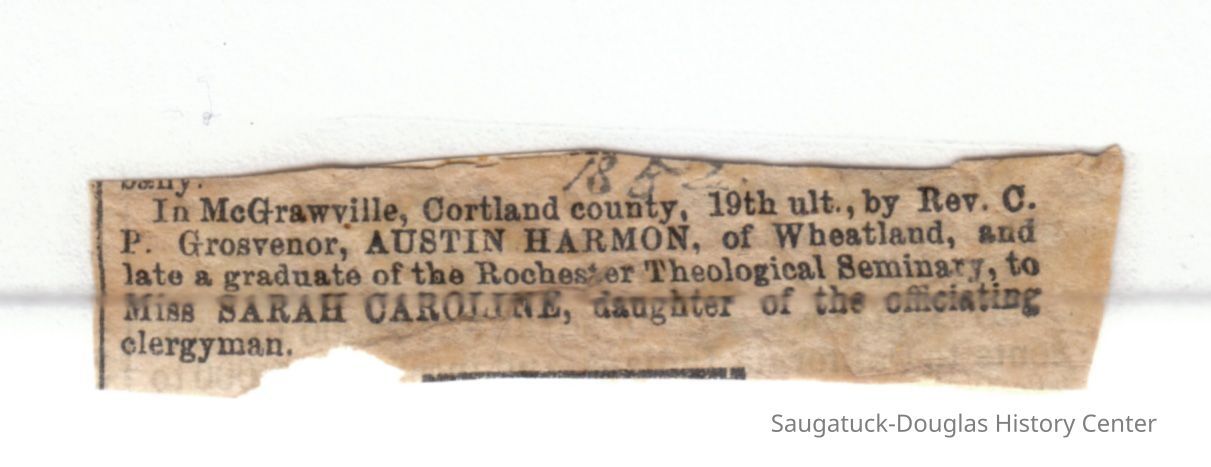 1852.
bany.
In McGrawville, Cortland county, 19th ult., by Rev. C.
P. Grosvenor, AUSTIN HARMON, of Wheatland, and
late a graduate of the Rochester Theological Seminary, to
Miss SARAH CAROLINE, daughter of the officiating
clergyman.
Saugatuck-Douglas History Center